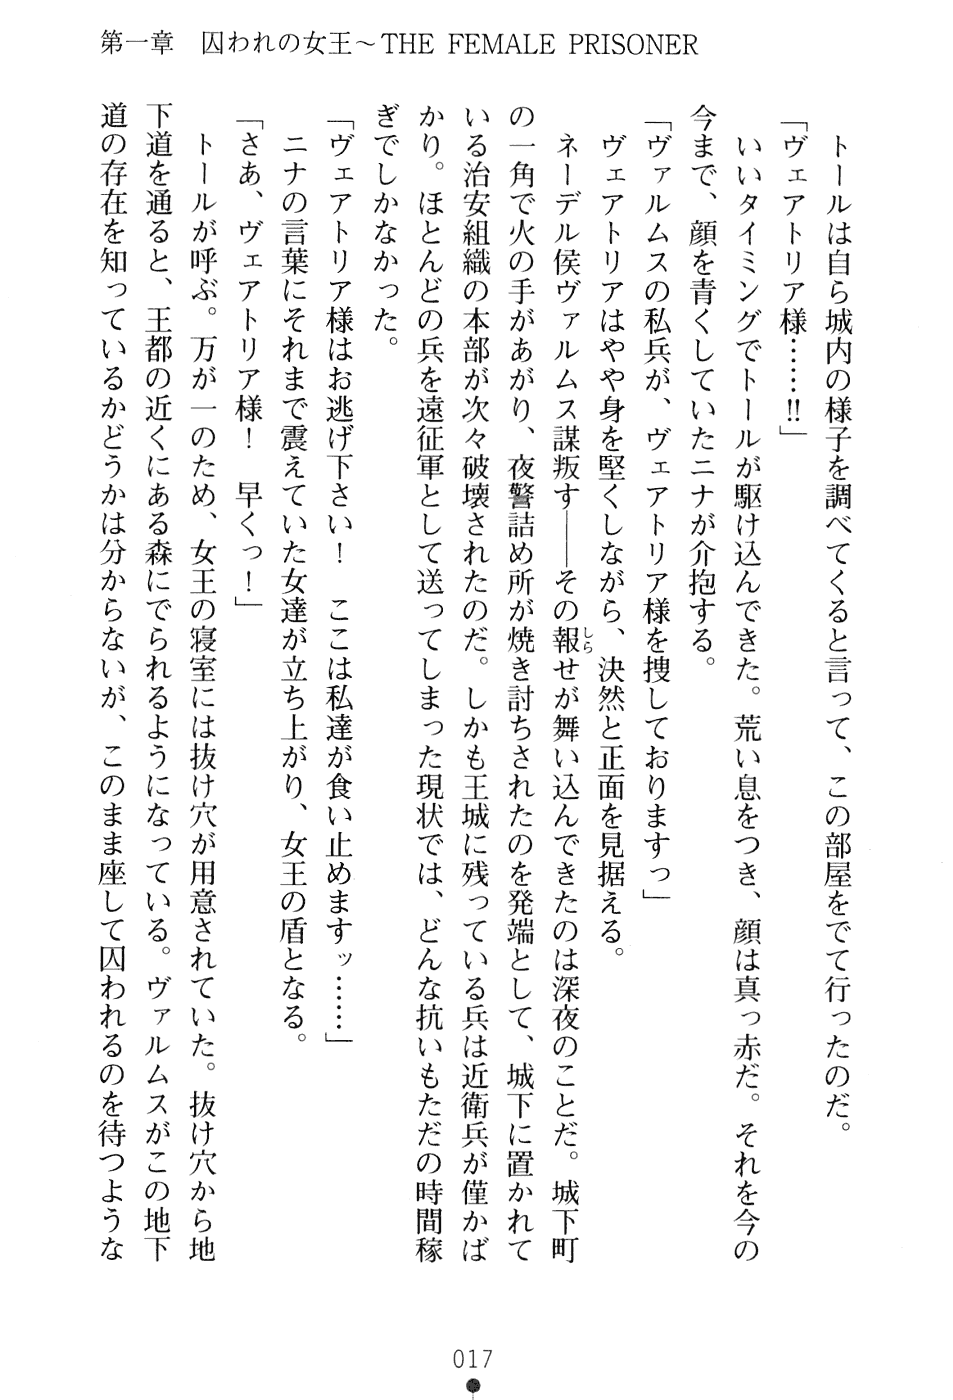 第一章　囚われの女王～THE FEMALE PRISONER
　トールは自ら城内の様子を調べてくると言って、この部屋をでて行ったのだ。
「ヴェアトリア様……!!」
　いいタイミングでトールが駆け込んできた。荒い息をつき、顔は真っ赤だ。それを今の
今まで、顔を青くしていたニナが介抱する。
「ヴァルムスの私兵が、ヴェアトリア様を捜しておりますっ」
　ヴェアトリアはやや身を堅くしながら、決然と正面を見据える。
　ネーデル侯ヴァルムス謀叛す――その報しらせが舞い込んできたのは深夜のことだ。城下町
の一角で火の手があがり、夜警詰め所が焼き討ちされたのを発端として、城下に置かれて
いる治安組織の本部が次々破壊されたのだ。しかも王城に残っている兵は近衛兵が僅かば
かり。ほとんどの兵を遠征軍として送ってしまった現状では、どんな抗いもただの時間稼
ぎでしかなかった。
「ヴェアトリア様はお逃げ下さい！　ここは私達が食い止めますッ……」
　ニナの言葉にそれまで震えていた女達が立ち上がり、女王の盾となる。
「さあ、ヴェアトリア様！　早くっ！」
　トールが呼ぶ。万が一のため、女王の寝室には抜け穴が用意されていた。抜け穴から地
下道を通ると、王都の近くにある森にでられるようになっている。ヴァルムスがこの地下
道の存在を知っているかどうかは分からないが、このまま座して囚われるのを待つような
017